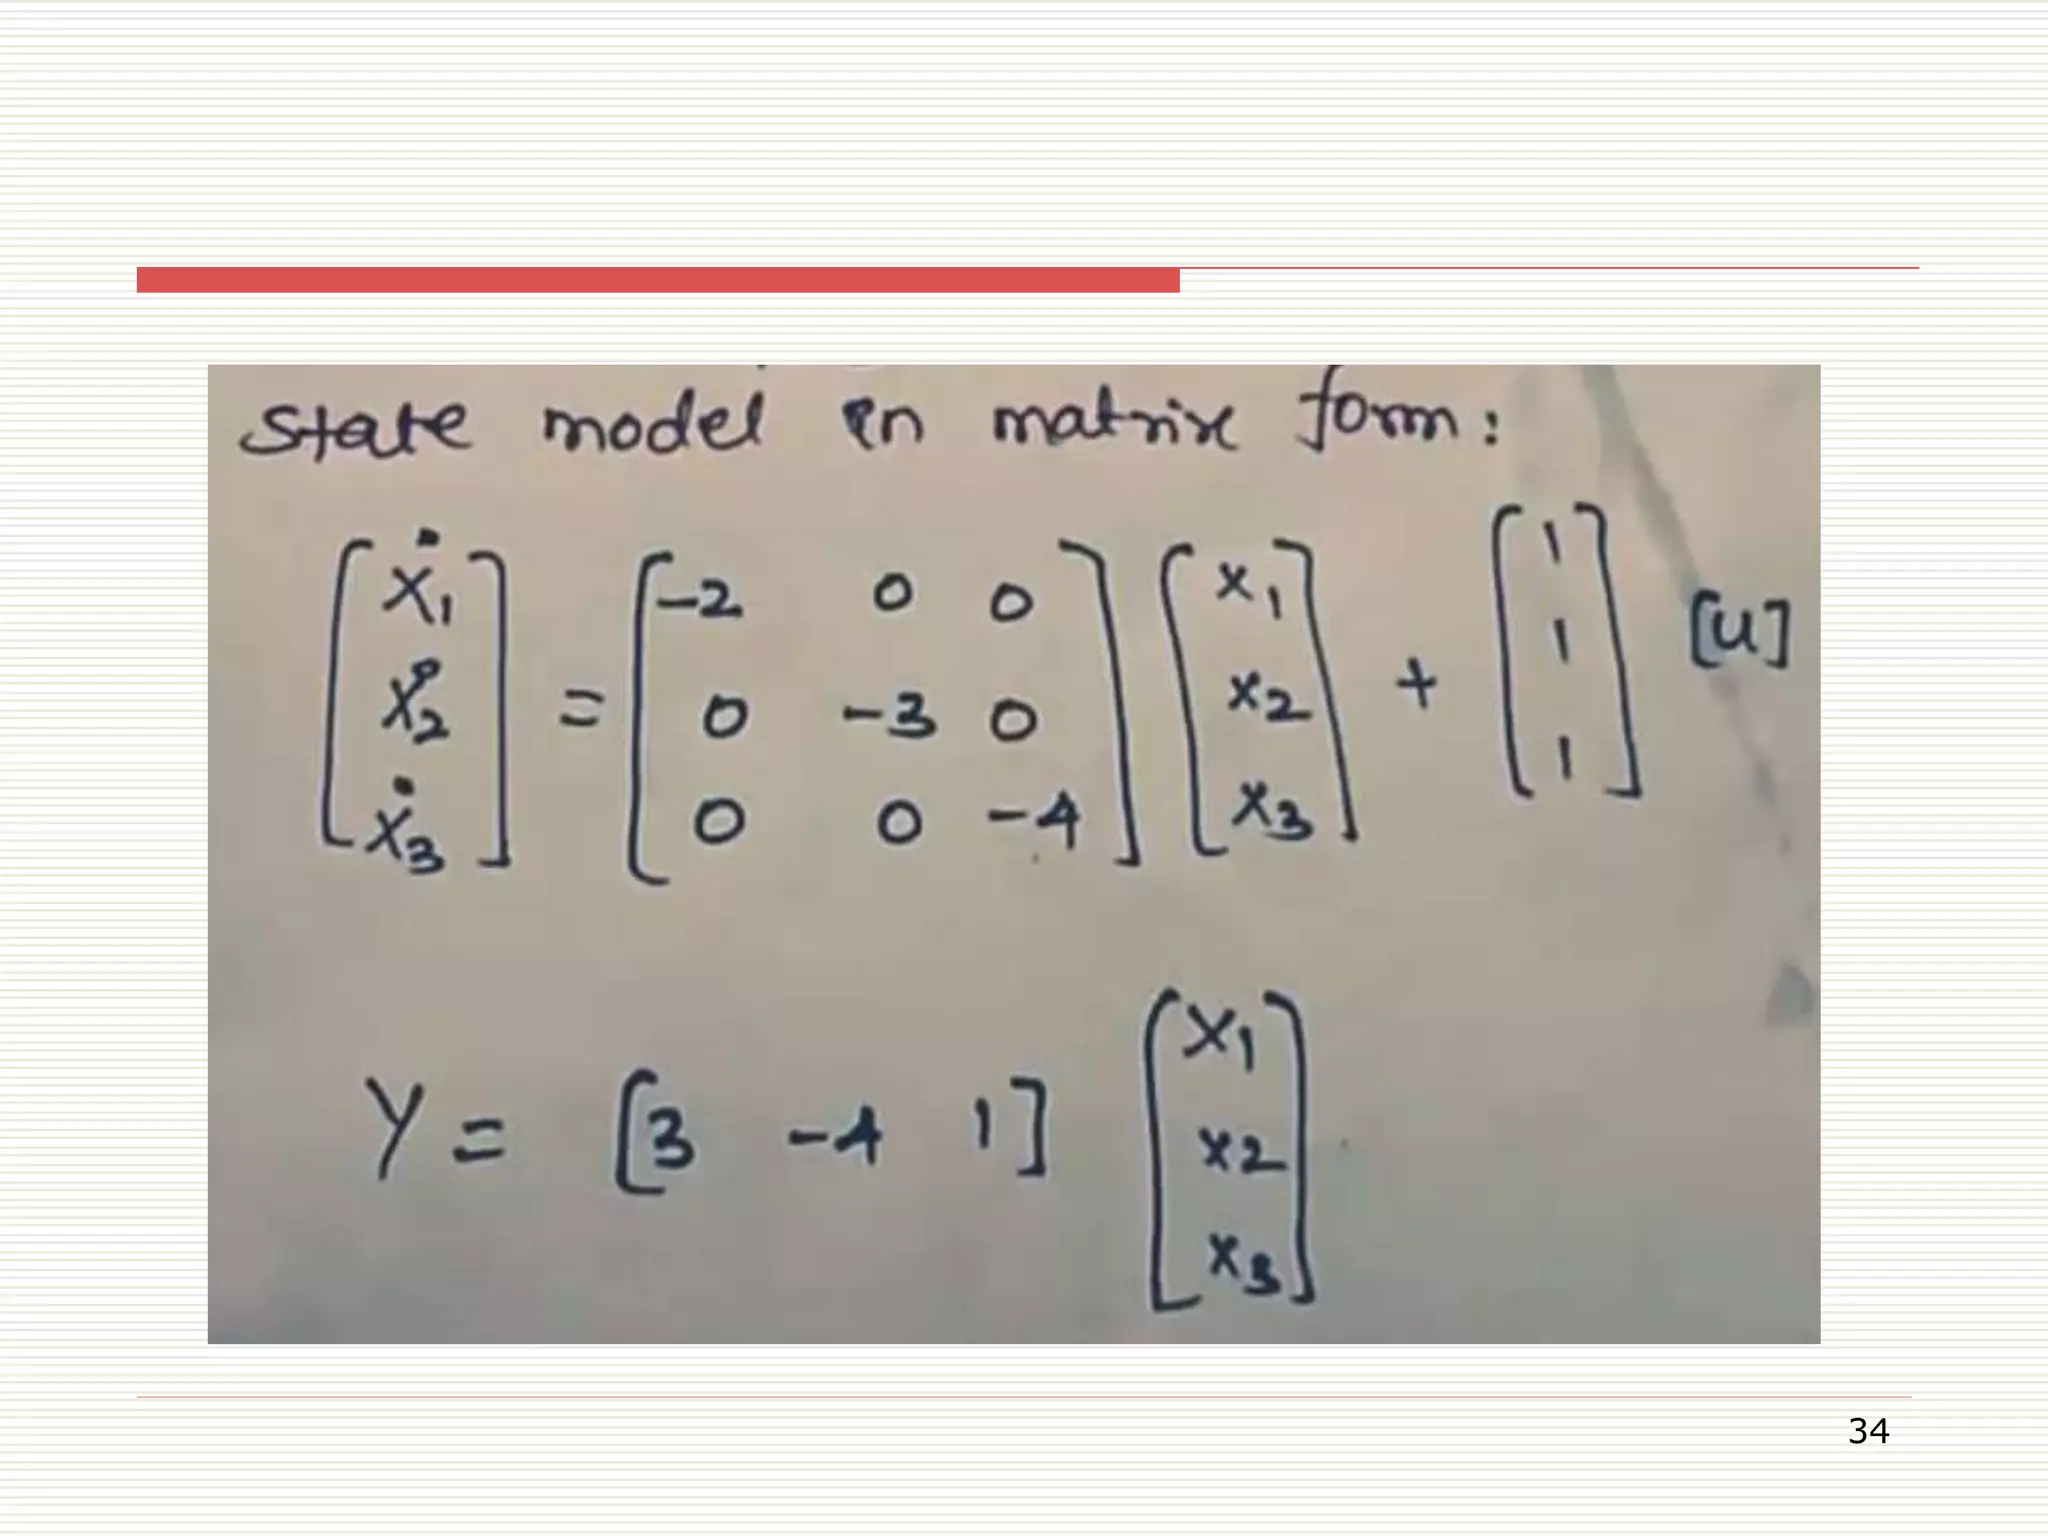 State model in matrix form:
[ẋ1 ẋ2 ẋ3] = [-2 0 0; 0 -3 0; 0 0 -4] [x1 x2 x3] + [1 1 1] [u]
Y = [3 -4 1] [x1 x2 x3]
34